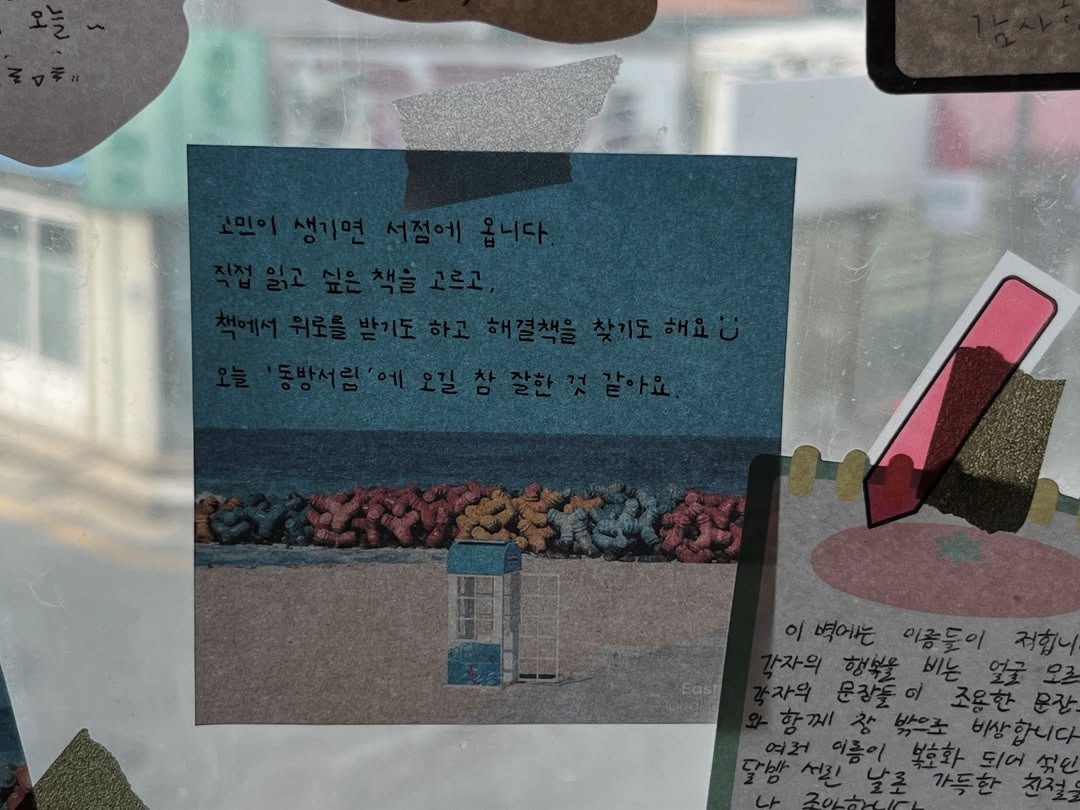 오늘 ~
감사
고민이 생기면 서점에 옵니다.
직접 읽고 싶은 책을 고르고,
책에서 위로를 받기도 하고 해결책을 찾기도 해요
오늘 '동방서림'에 오길 참 잘한 것 같아요.
East
이 벽에는 이름들이 적힙니
각자의 행복을 비는 얼굴 모르
각자의 문장들이 조용한 문장
와 함께 창 밖으로 비상합니다
여러 이름이 복호화 되어 섞인
달밤 서린 날로 가득한 친절을
나 좋아합니다